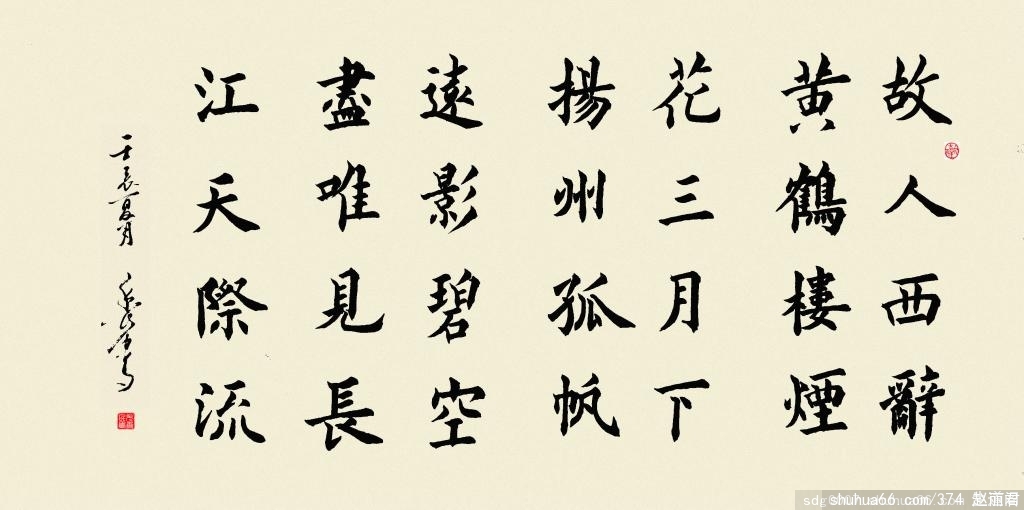 故人西辭
黄鶴樓煙
花三月下
揚州孤帆
遠影碧空
盡唯見長
江天際流
壬辰夏月
shuhua66 com/374